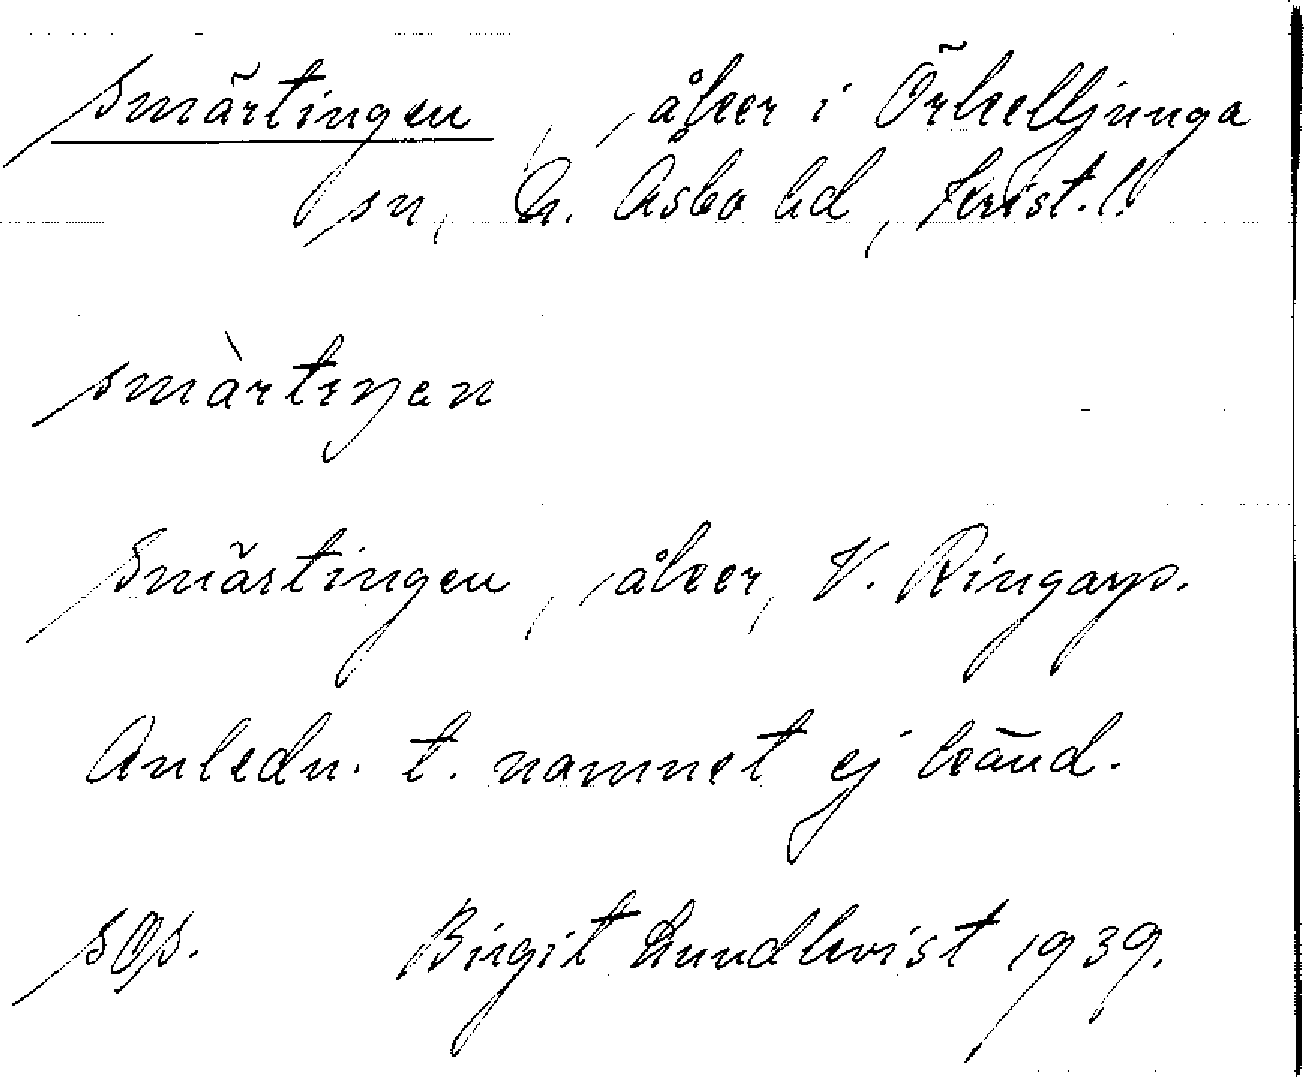 Smärtingen, åker i Örkelljunga
sn, N. Åsbo hd, Krist. l.
smàrtıŋen
Smärtingen, åker, V. Ringarp.
Anledn. t. namnet ej känd.
Birgit Lundkvist 1939.